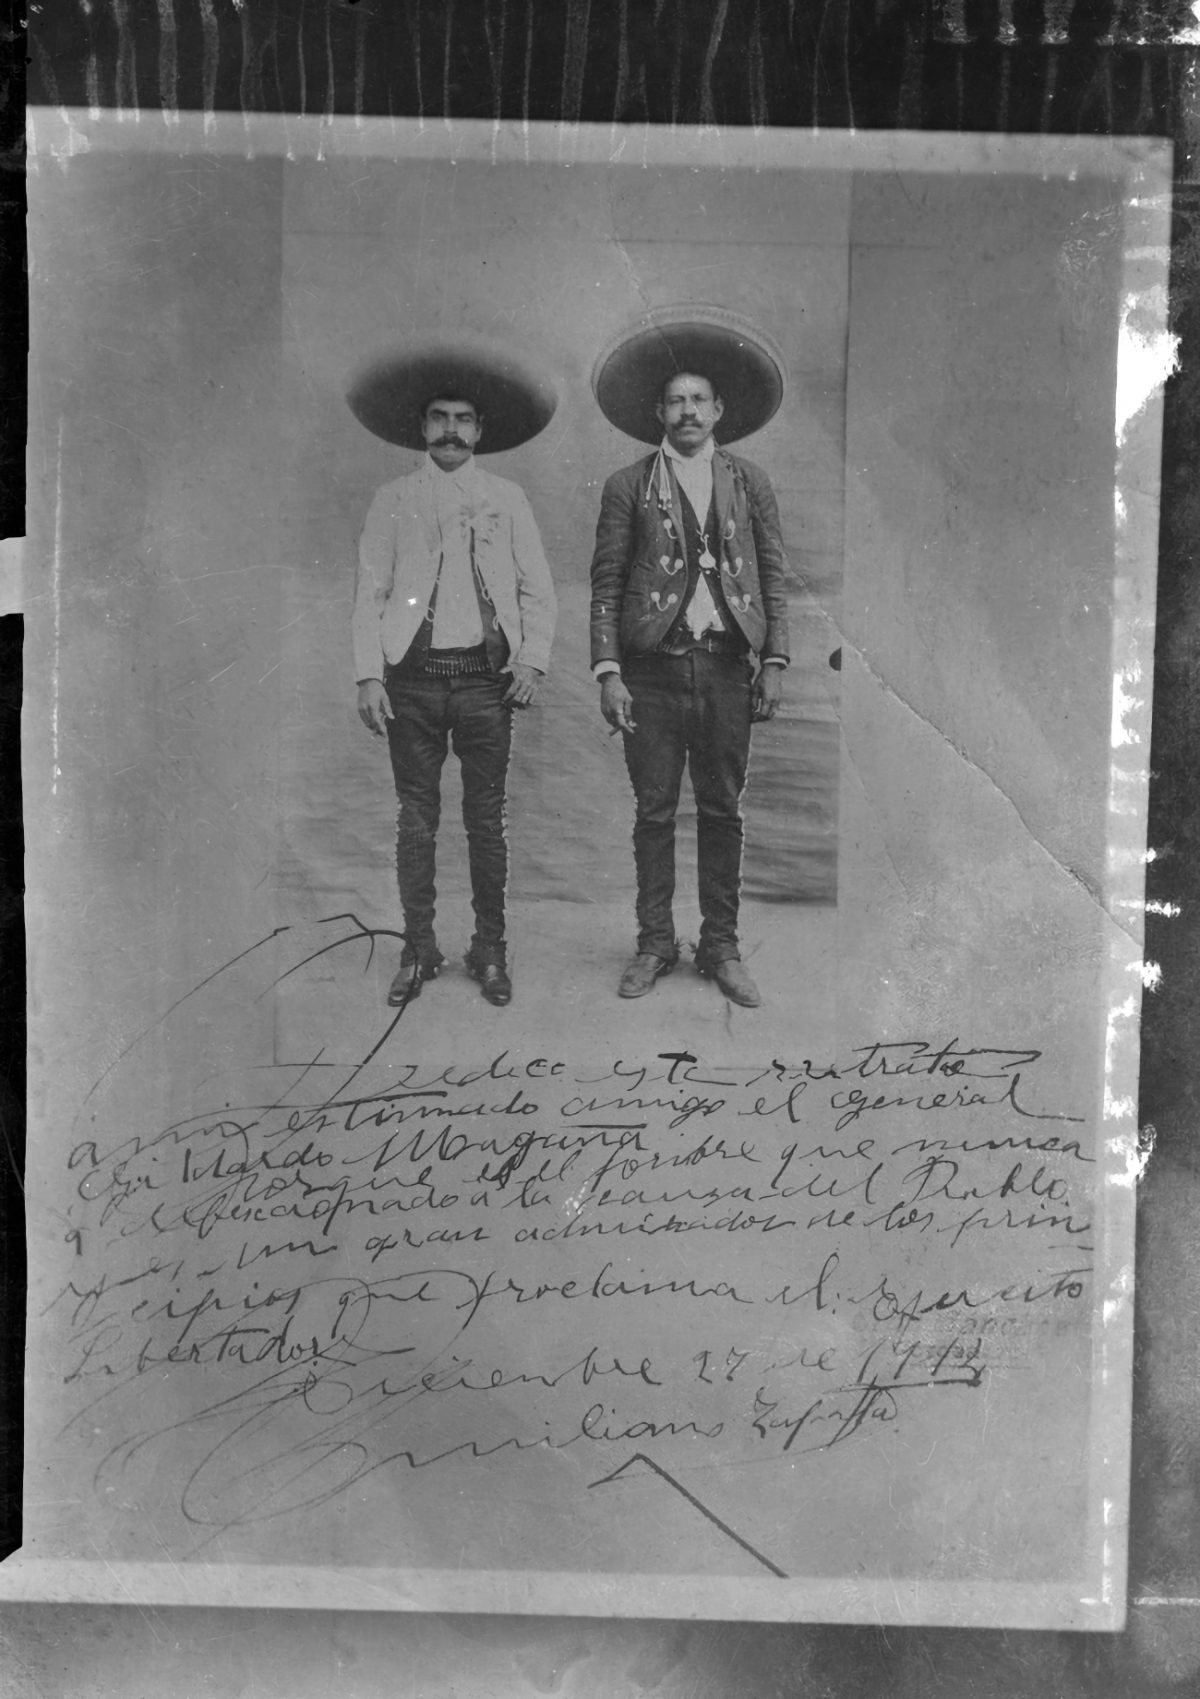 Dedico este retrato
a mi estimado amigo el General
Gildardo Magaña
porque es el hombre que nunca
a defecsionado a la causa del Pueblo
y es un gran admirador de los prin
cipios que proclama el Ejercito
Libertador
Diciembre 27 de
Emiliano Zapata